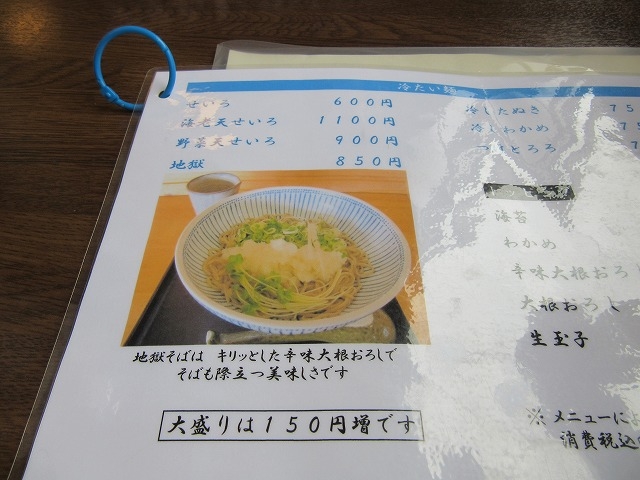 冷たい麺
せいろ 600円
海老天せいろ 1100円
野菜天せいろ 900円
地獄 850円
冷したぬき 75
冷しわかめ 75
つけとろろ 7
海苔
わかめ
辛味大根おろし
大根おろし
生玉子
地獄そばは キリッとした辛味大根おろしで
そばも際立つ美味しさです
大盛りは150円増です
※ メニューに
消費税込